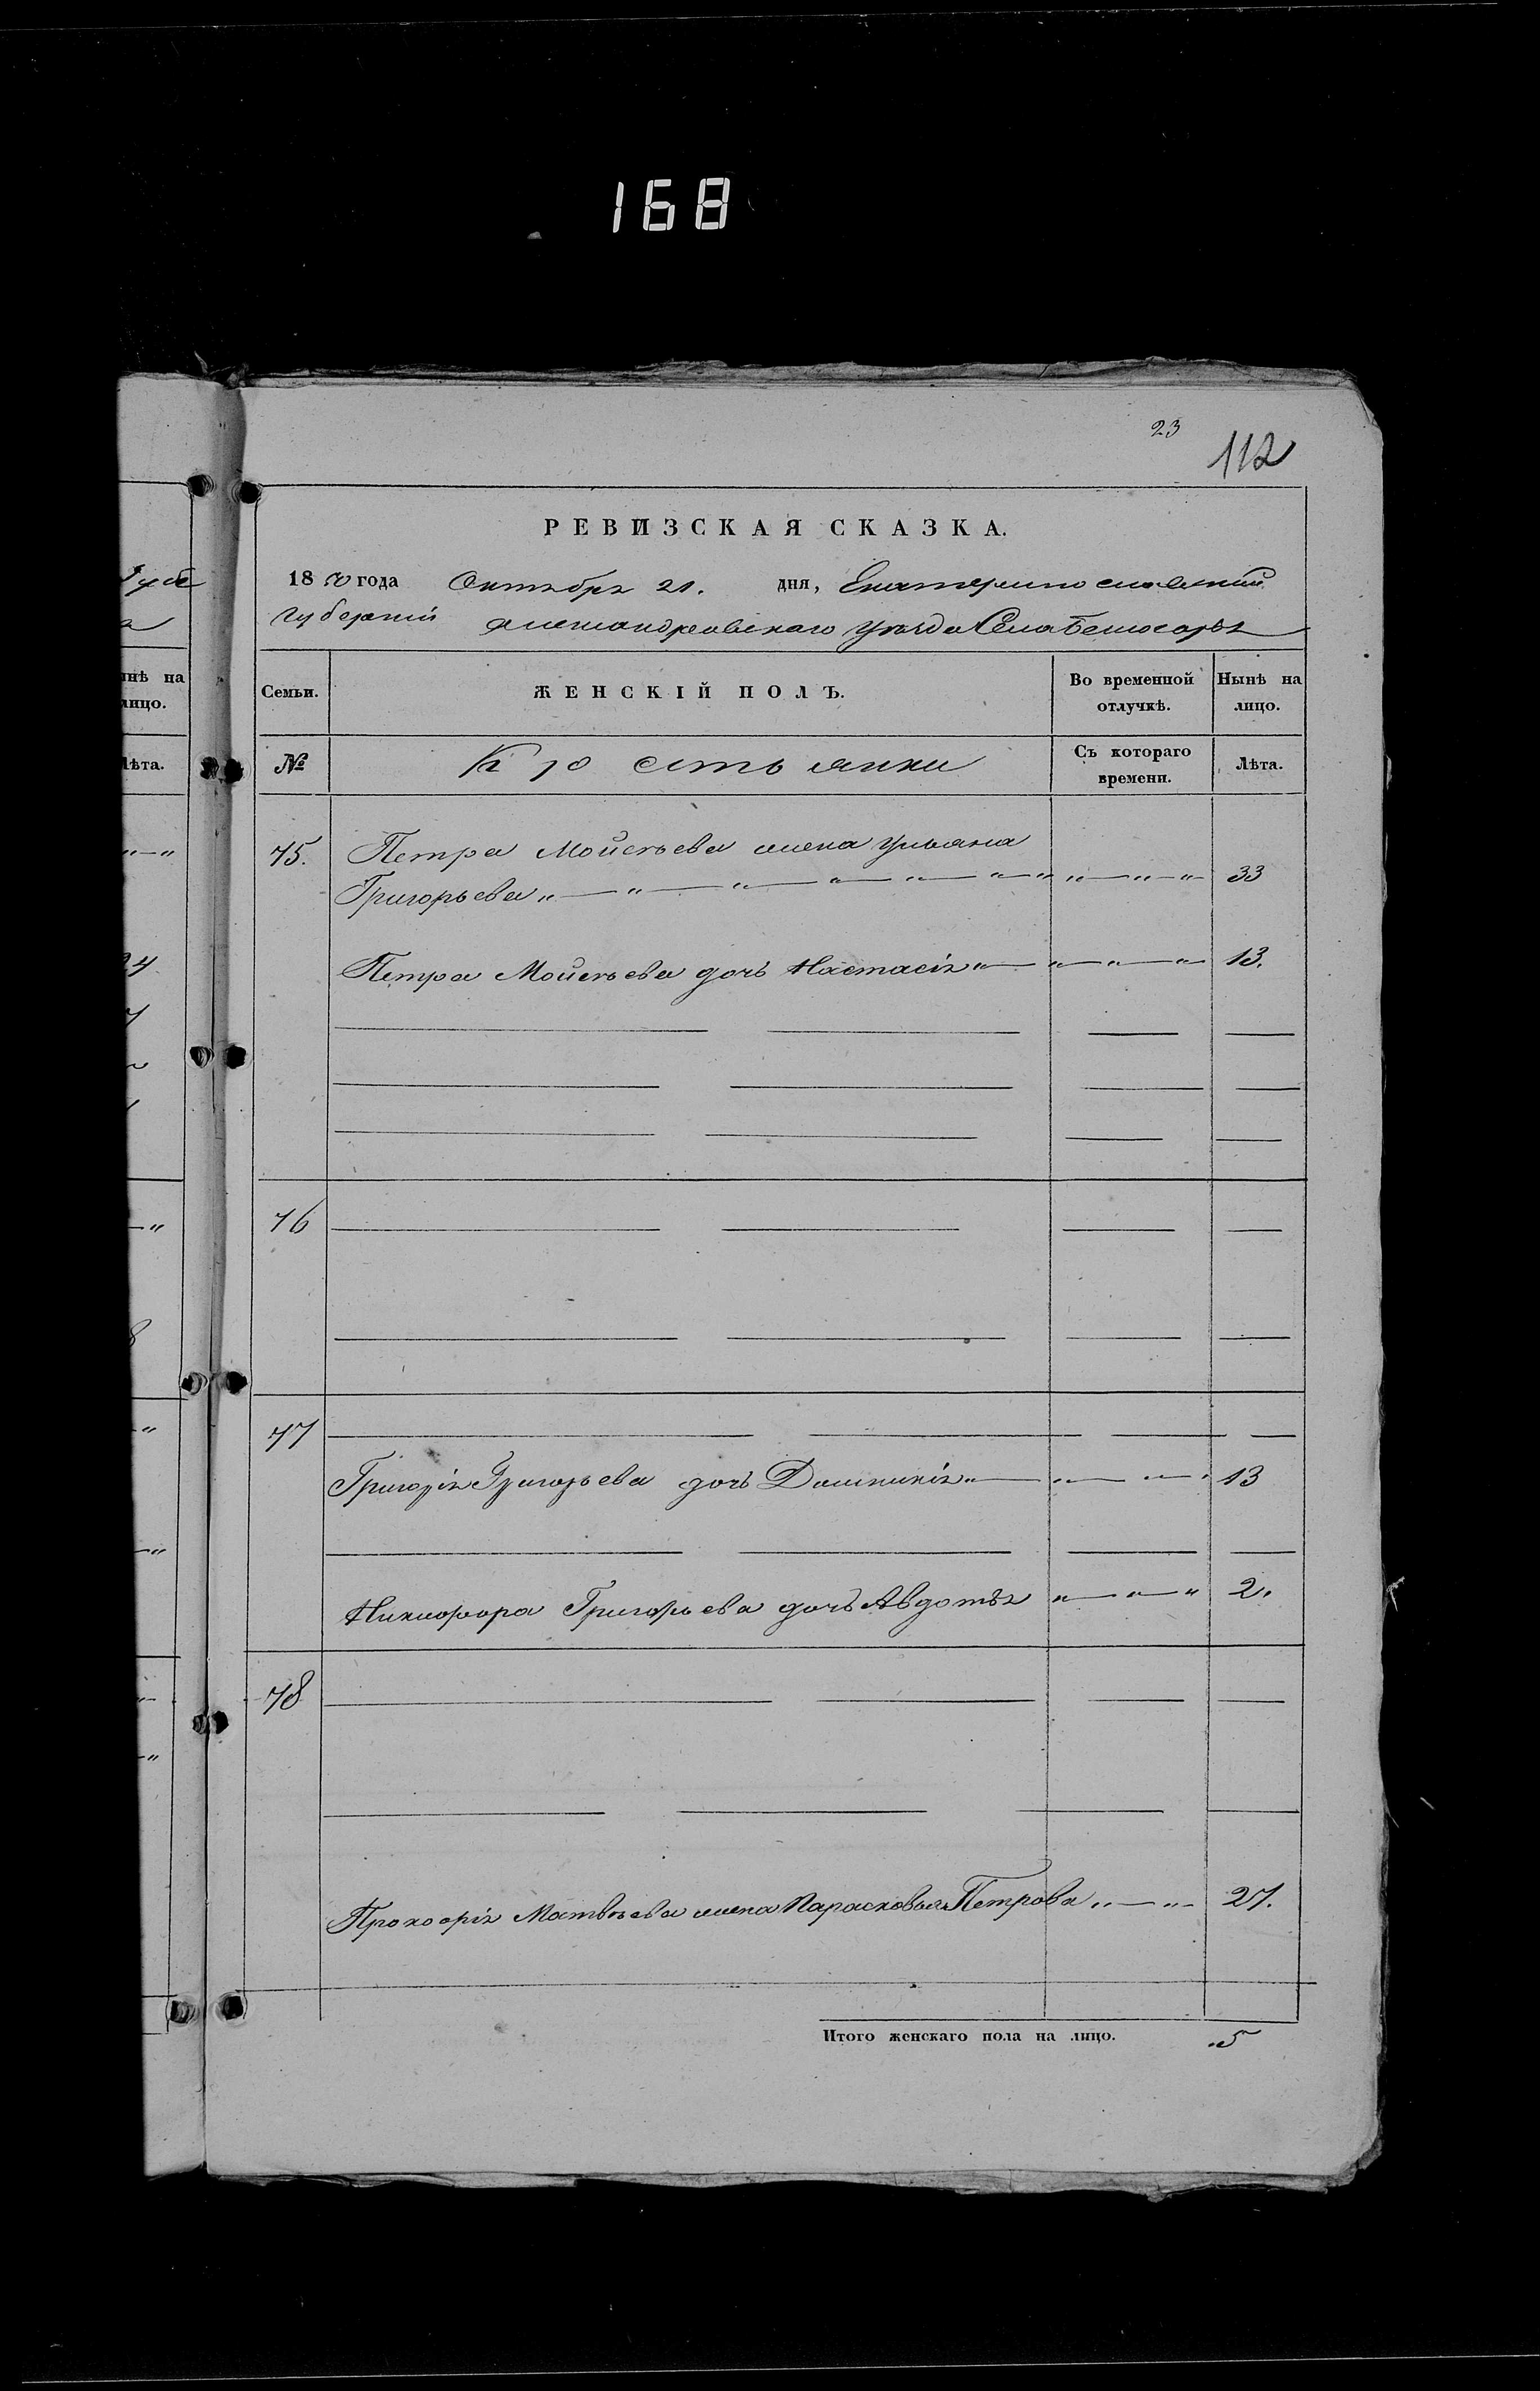 168
23
112
РЕВИЗСКАЯ СКАЗКА.
1850 года Октября 21. дня, Екатеринославской
Губерніи Александровскаго Уѣзда Села
Семьи. ЖЕНСКІЙ ПОЛЪ. Во временной отлучкѣ. Нынѣ на лицо.
№ Крестьянки Съ котораго времени. Лѣта.
75. Петра Мойсѣева жена Ульяна
Григорьева „—„—„—„—„—„„ „—„—„ 33
Петра Мойсѣева дочь Настасія „— „—„—„ 13.
76
77
Григорія Григорьева дочь Домникія „— „—„— 13
Никифора Григорьева дочь Авдотья „—„—„ 2.
78
Прокофія Матвѣева жена Парасковья Петрова „—„ 27.
Итого женскаго пола на лицо. 5
нѣ на
лицо.
Лѣта.